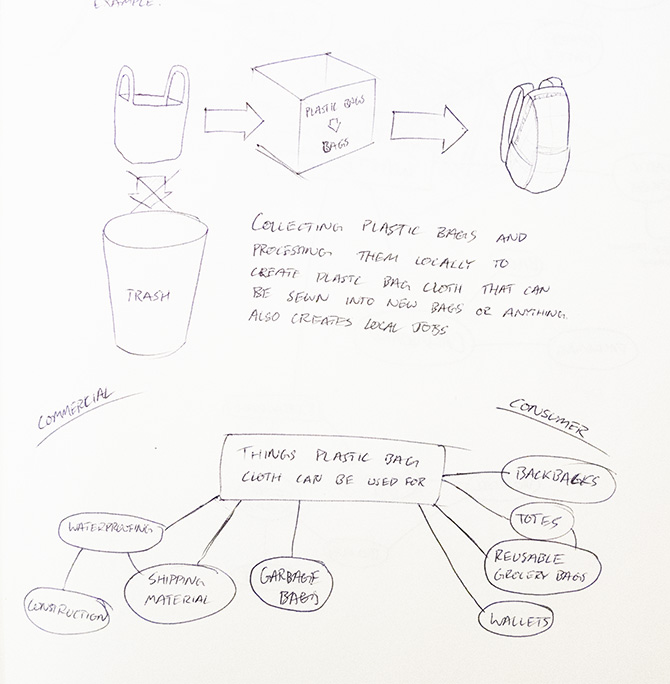 EXAMPLE:
PLASTIC BAGS
BAGS
TRASH
COLLECTING PLASTIC BAGS AND
PROCESSING THEM LOCALLY TO
CREATE PLASTC BAG CLOTH THAT CAN
BE SEWN INTO NEW BAGS OR ANYTHING.
ALSO CREATES LOCAL JOBS
COMMERCIAL
CONSUMER
THINGS PLASTIC BAG
CLOTH CAN BE USED FOR
BACKBAGKS
TOTES
WATERPROOFING
REUSABLE
GROCERY BAGS
SHIPPING
MATERIAL
GARBAGE
BAGS
CONSTRUCTION
WALLETS